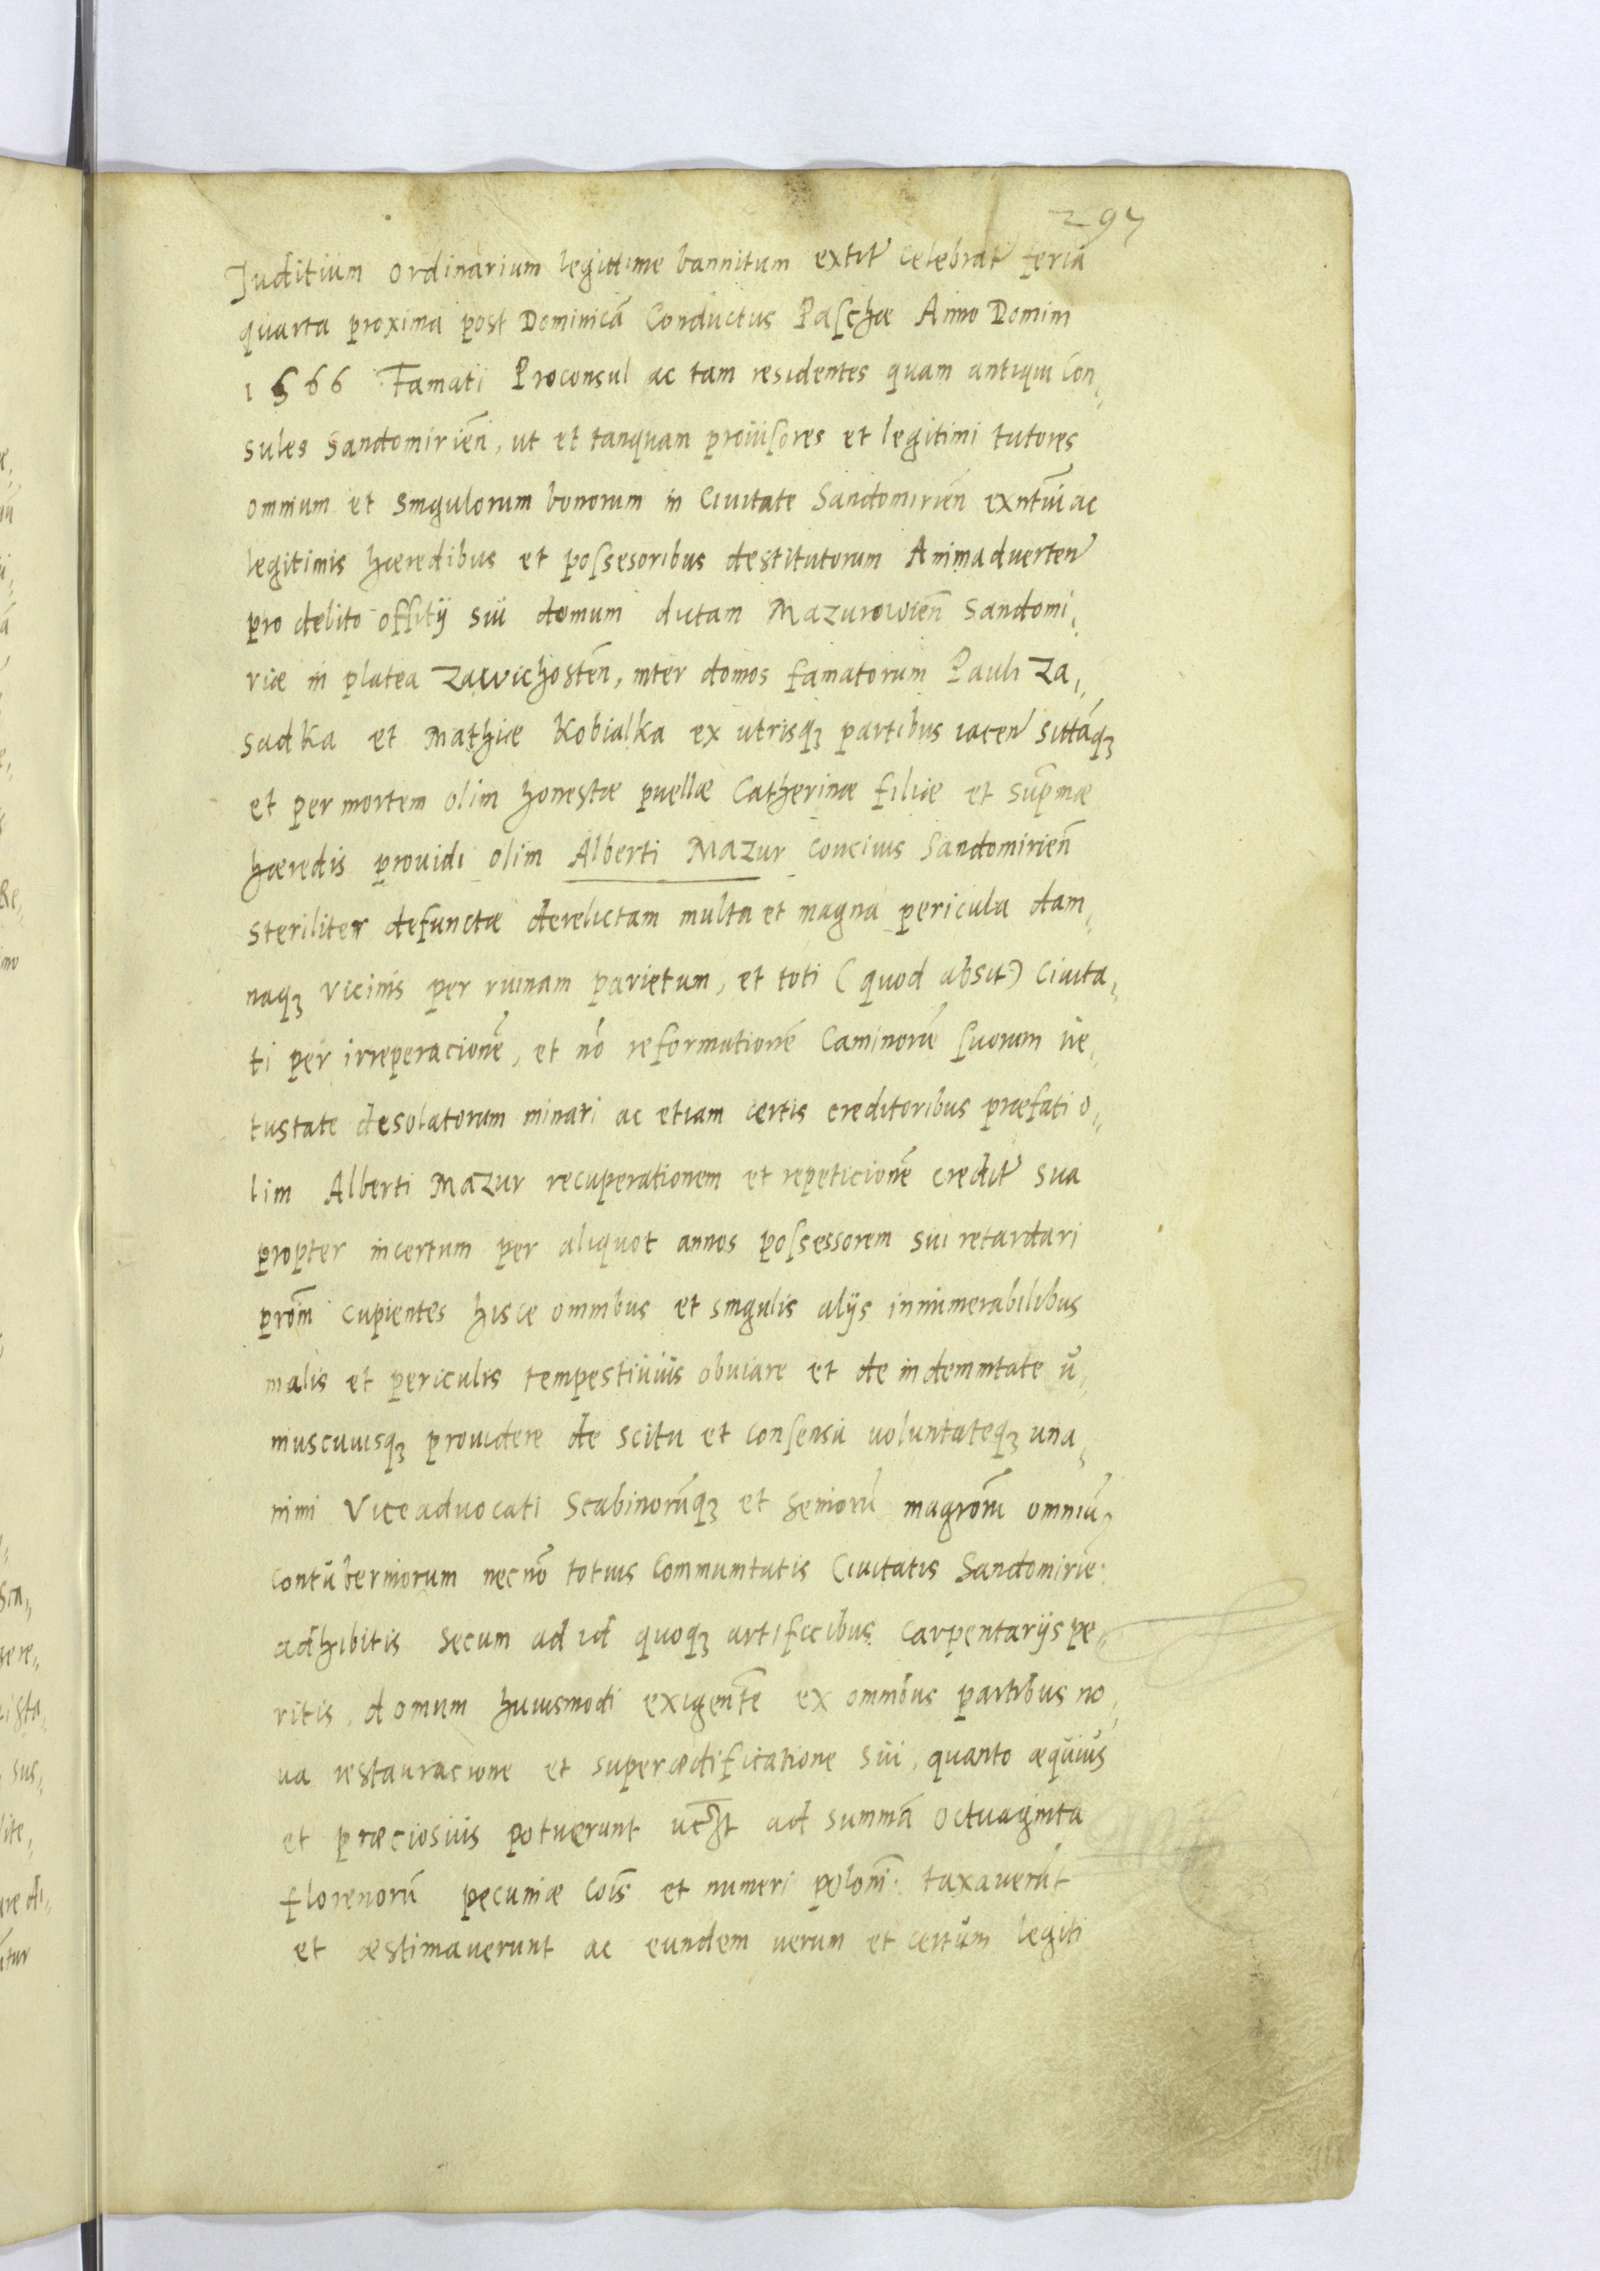 297
Juditium ordinarium legittime bannitum extit celebrat feria
quarta proxima post Dominicā Conductus Paschæ Anno Domini
1566 Famati Proconsul ac tam residentes quam antiqui Con„
sules Sandomirieñ, ut et tanquam prouisores et legitimi tutores
omnium et singulorum bonorum in Ciuitate Sandomirieñ exñtiũ ac
legitimis hæredibus et possesoribus destitutorum Animaduerteñ
pro delito offitij sui domum dictam Mazurowieñ Sandomi„
riæ in platea Zawichosteñ, inter domos famatorum Pauli Za„
sadka et Mathiæ Kobialka ex utrisqꝫ partibus iaceñ sittāqꝫ
et per mortem olim honestæ puellæ Catherinæ filiæ et supmæ
hæredis prouidi olim Alberti Mazur conciuis Sandomirieñ
steriliter defunctæ derelictam multa et magna pericula dam„
naqꝫ vicinis per ruinam parietum, et toti (quod absit) Ciuita„
ti per irreperacionē, et nō reformationē Caminorũ suorum ue„
tustate desolatorum minari ac etiam certis creditoribus præfati o„
lim Alberti Mazur recuperationem et repeticionē credit sua
propter incertum per aliquot annos possessorem sui retardari
prom̃ cupientes hisce omnibus et singulis alijs innumerabilibus
malis et periculis tempestiuius obuiare et de indemnitate ŭ„
niuscuiusqꝫ prouidere de scitu et consensu uoluntateqꝫ una„
nimi Viceaduocati Scabinorũqꝫ et Seniorũ magrorũ omniũ
contŭberniorum necnō totius Communitatis Ciuitatis Sandomirie.
adhibitis secum ad id quoqꝫ artificibus Carpentarijs pe„
ritis, domum huiusmodi exigentē ex omnibus partibus no„
ua restauracione et superædificatione sui, quanto æquius
et præciosius potuerunt ad summā octuaginta
florenorũ pecuniæ cōis et numeri poloni. taxauerũt
et æstimauerunt ac eundem uerum et certum legiti